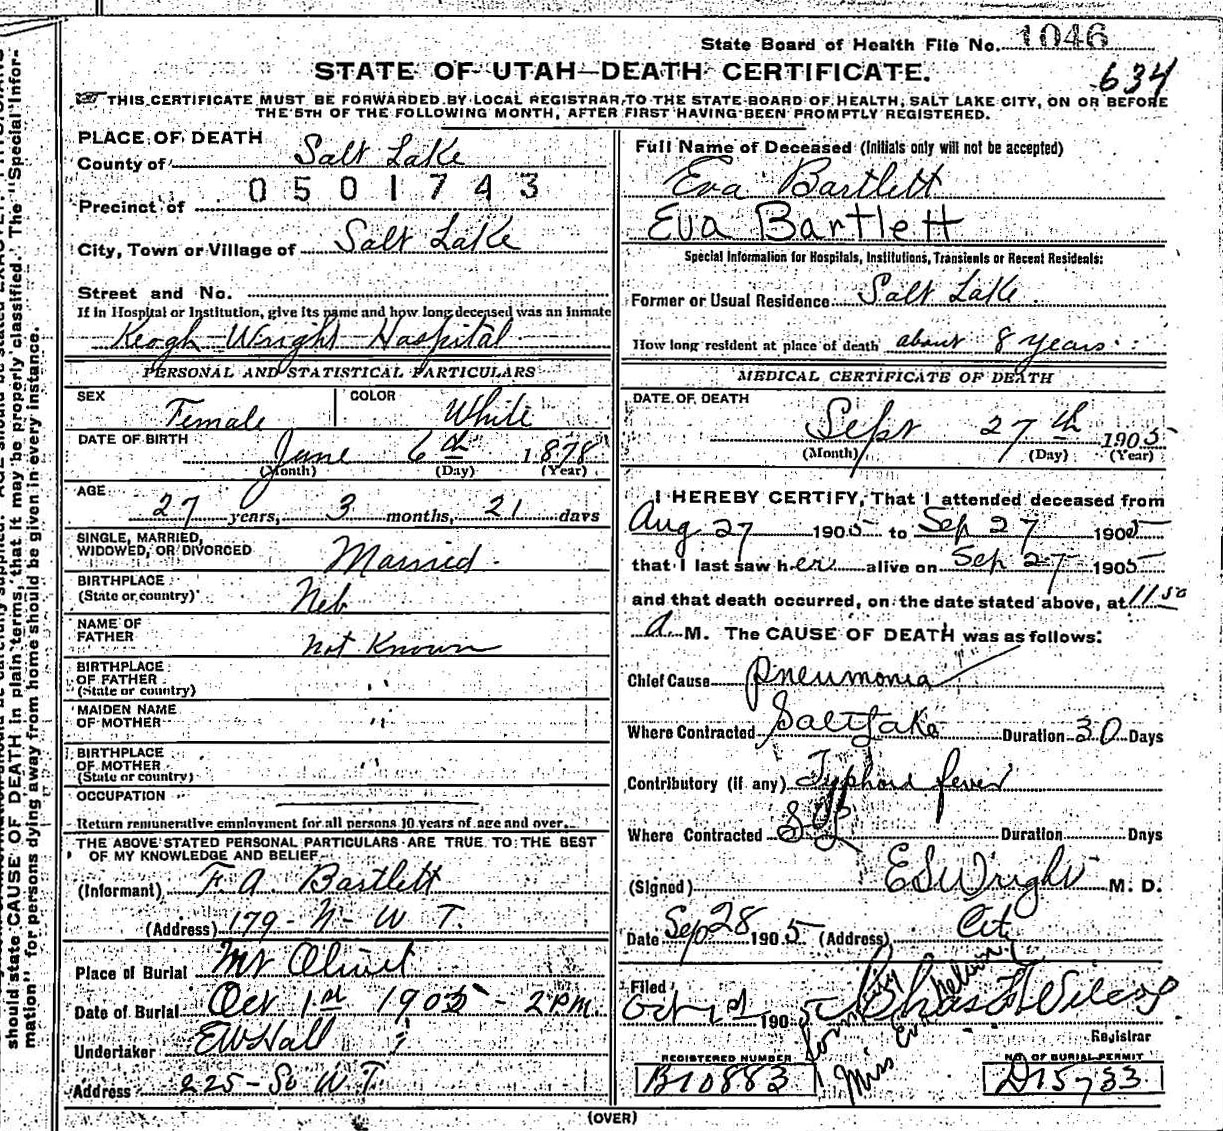 State Board of Health File No. 1046
634
STATE OF UTAH—DEATH CERTIFICATE.
THIS CERTIFICATE MUST BE FORWARDED BY LOCAL REGISTRAR TO THE STATE BOARD OF HEALTH, SALT LAKE CITY, ON OR BEFORE
THE 5TH OF THE FOLLOWING MONTH, AFTER FIRST HAVING BEEN PROMPTLY REGISTERED.
PLACE OF DEATH
County of Salt Lake
0501743
Precinct of
City, Town or Village of Salt Lake
Street and No.
If in Hospital or Institution, give its name and how long deceased was an inmate
Keogh-Wright Hospital
PERSONAL AND STATISTICAL PARTICULARS
SEX Female COLOR White
DATE OF BIRTH
June 6th 1878
(Month) (Day) (Year)
AGE
27 years, 3 months, 21 days
SINGLE, MARRIED,
WIDOWED, OR DIVORCED Married.
BIRTHPLACE
(State or country) Neb
NAME OF
FATHER not Known
BIRTHPLACE
OF FATHER
(State or country) "
MAIDEN NAME
OF MOTHER "
BIRTHPLACE
OF MOTHER
(State or country) "
OCCUPATION
Return remunerative employment for all persons 10 years of age and over.
THE ABOVE STATED PERSONAL PARTICULARS ARE TRUE TO THE BEST
OF MY KNOWLEDGE AND BELIEF
(Informant) F. A. Bartlett
(Address) 179 - N - W T.
Place of Burial Mt Olivet
Date of Burial Oct 1st 1905 - 2 P.M.
Undertaker E W Hall
Address 225 - So W T.
Full Name of Deceased (Initials only will not be accepted)
Eva Bartlett
Eva Bartlett
Special Information for Hospitals, Institutions, Transients or Recent Residents:
Former or Usual Residence Salt Lake
How long resident at place of death about 8 years
MEDICAL CERTIFICATE OF DEATH
DATE OF DEATH
Sept 27th 1905
(Month) (Day) (Year)
I HEREBY CERTIFY, That I attended deceased from
Aug 27 1905 to Sep 27 1905
that I last saw her alive on Sep 27 1905
and that death occurred, on the date stated above, at 11 50
A. M. The CAUSE OF DEATH was as follows:
Chief Cause Pneumonia
Where Contracted Salt Lake Duration 30 Days
Contributory (if any) Typhoid fever
Where Contracted Duration Days
(Signed) E S Wright M. D.
Date Sep 28 1905 (Address) Cit
Filed
Oct 1st 1905 Chas
Registrar
formerly
Miss
REGISTERED NUMBER
B10883
NO. OF BURIAL PERMIT
D15733
(OVER)
should state CAUSE OF DEATH in plain terms, that it may be properly classified. The "Special Infor-
mation" for persons dying away from home should be given in every instance.